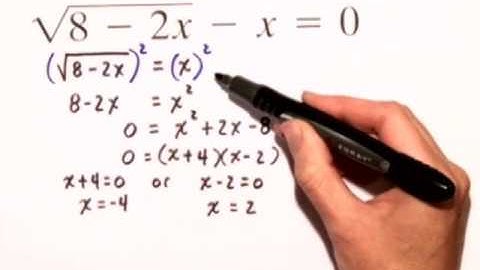 √(8 − 2x) − x = 0
(√(8-2x))² = (x)²
8-2x = x²
0 = x²+2x-8
0 = (x+4)(x-2)
x+4=0 or x-2=0
x=-4 x=2